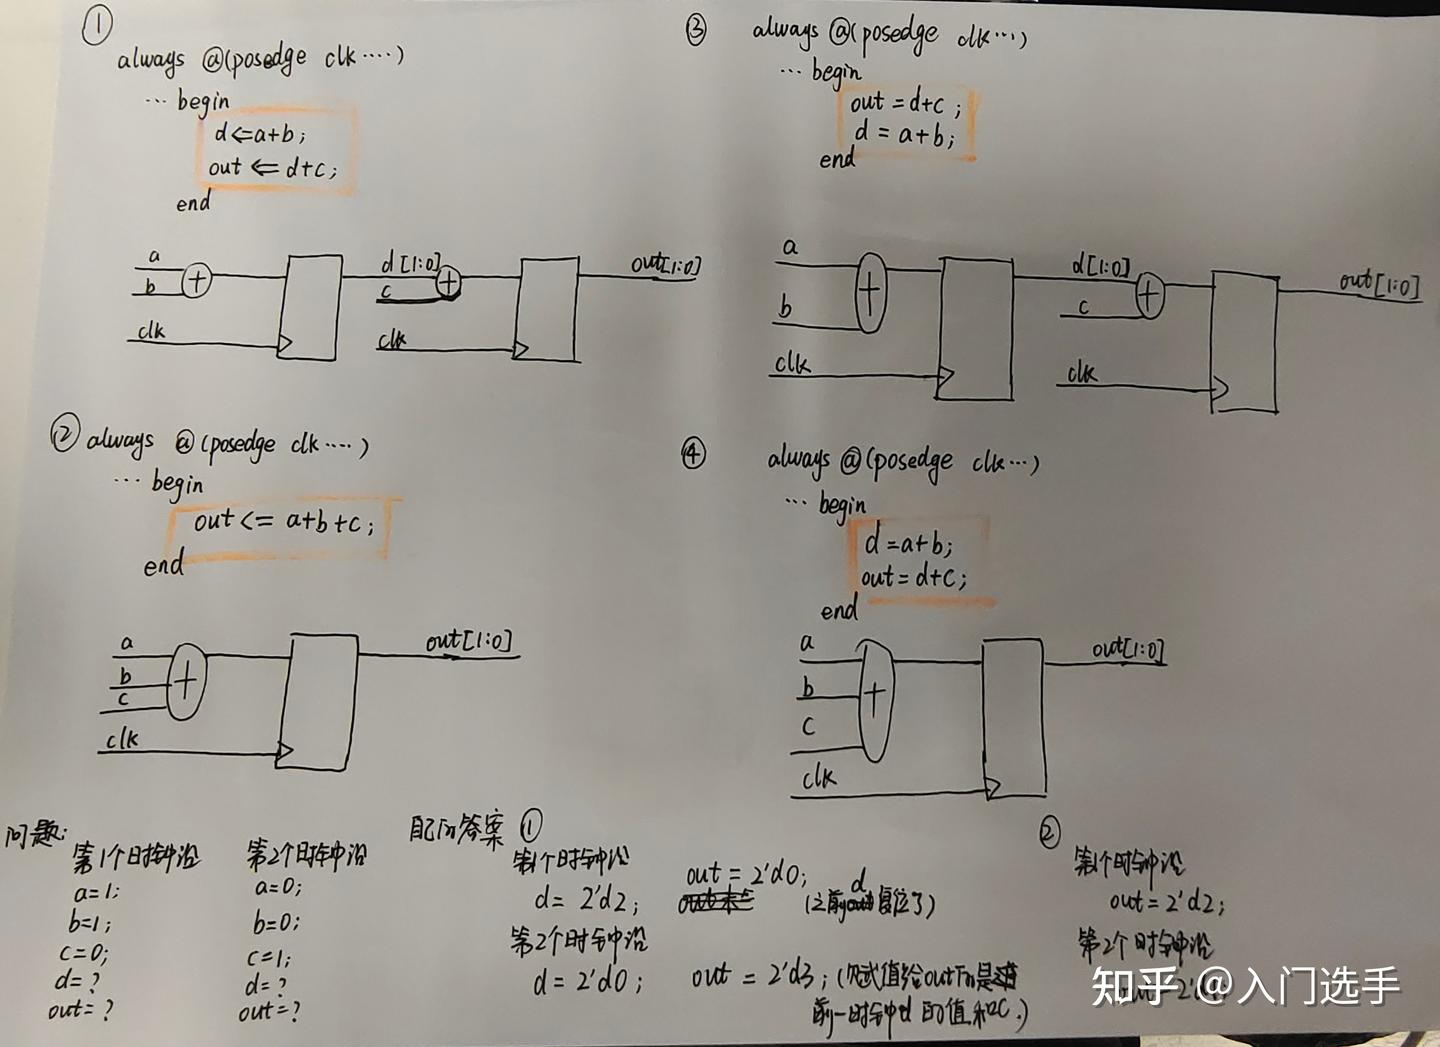 ①
always @(posedge clk····)
··· begin
d<=a+b;
out <= d+c;
end
a
b
clk
d[1:0]
c
clk
out[1:0]
② always @(posedge clk····)
··· begin
out <= a+b+c;
end
a
b
c
clk
out[1:0]
③ always @(posedge clk···)
··· begin
out = d+c;
d = a+b;
end
a
b
clk
d[1:0]
c
clk
out[1:0]
④ always @(posedge clk···)
··· begin
d=a+b;
out=d+c;
end
a
b
c
clk
out[1:0]
问题:
第1个时钟沿
a=1;
b=1;
c=0;
d=?
out=?
第2个时钟沿
a=0;
b=0;
c=1;
d=?
out=?
自己的答案 ①
第1个时钟沿
d=2'd2; out=2'd0; (之前d复位了)
第2个时钟沿
d=2'd0; out=2'd3; (赋值给out的是
前一时钟d的值和C.)
②
第1个时钟沿
out=2'd2;
第2个时钟沿
知乎 @入门选手